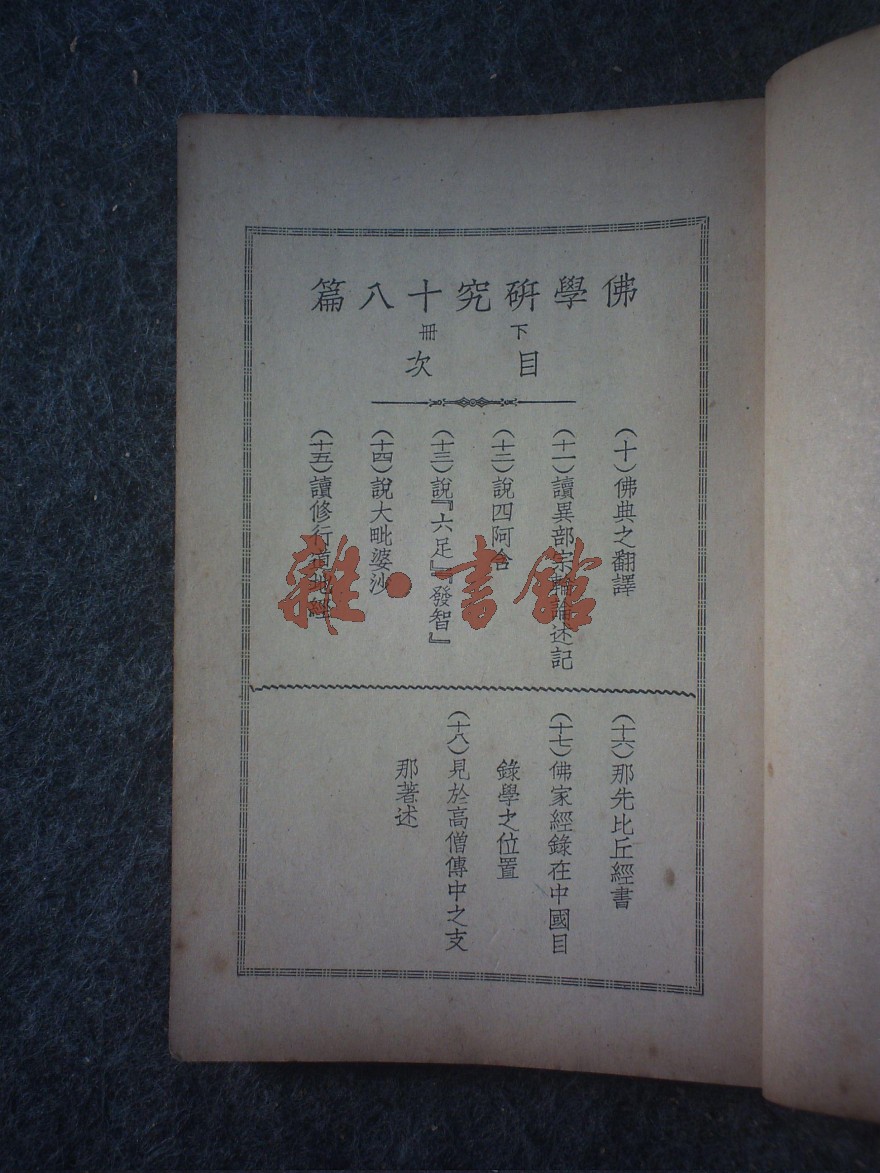 佛學硏究十八篇
下冊
目次
(十)佛典之翻譯
(十一)讀異部宗輪論述記
(十二)說四阿含
(十三)說『六足』『發智』
(十四)說大毗婆沙
(十五)讀修行道地經
(十六)那先比丘經書
(十七)佛家經錄在中國目
錄學之位置
(十八)見於高僧傳中之支
那著述
雜·書館